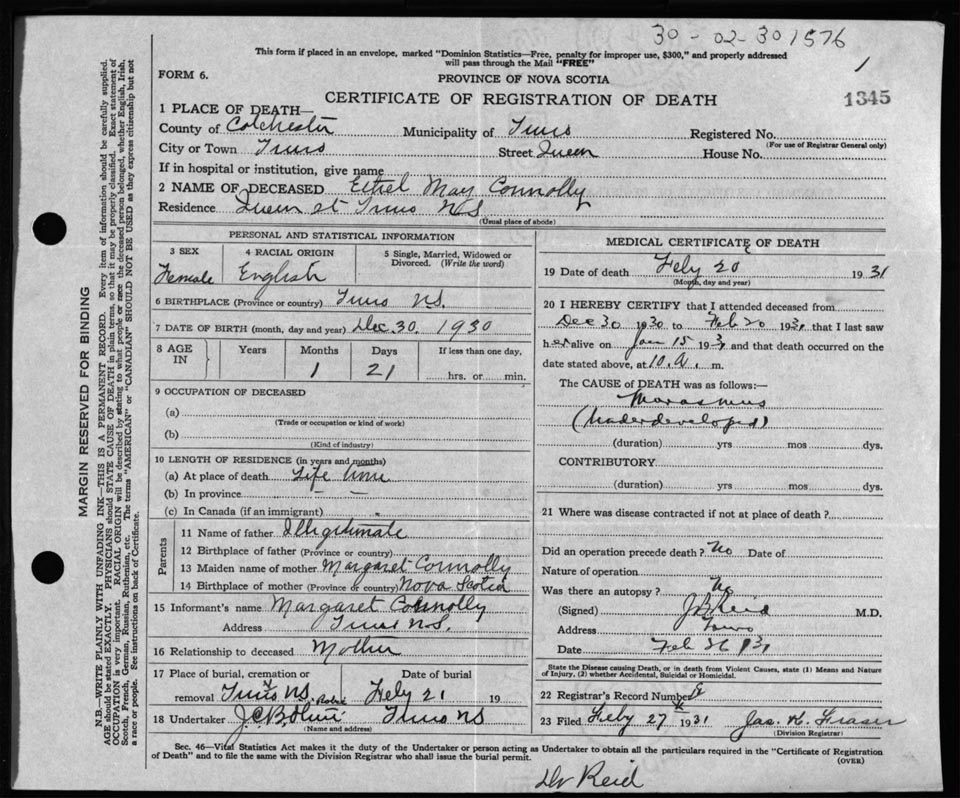 30-02-301576
This form if placed in an envelope, marked "Dominion Statistics—Free, penalty for improper use, $300," and properly addressed
will pass through the Mail "FREE"
1
FORM 6.
PROVINCE OF NOVA SCOTIA
CERTIFICATE OF REGISTRATION OF DEATH
1345
1 PLACE OF DEATH—
County of Colchester Municipality of Truro Registered No.
(For use of Registrar General only)
City or Town Truro Street Queen House No.
If in hospital or institution, give name
2 NAME OF DECEASED Ethel May Connolly
Residence Queen st Truro NS
(Usual place of abode)
PERSONAL AND STATISTICAL INFORMATION
3 SEX
Female
4 RACIAL ORIGIN
English
5 Single, Married, Widowed or
Divorced. (Write the word)
6 BIRTHPLACE (Province or country) Truro NS.
7 DATE OF BIRTH (month, day and year) Dec. 30. 1930
8 AGE
IN
Years
Months
1
Days
21
If less than one day,
hrs. or min.
9 OCCUPATION OF DECEASED
(a)
(Trade or occupation or kind of work)
(b)
(Kind of industry)
10 LENGTH OF RESIDENCE (in years and months)
(a) At place of death Life time
(b) In province — —
(c) In Canada (if an immigrant)
Parents
11 Name of father Illegitimate
12 Birthplace of father (Province or country)
13 Maiden name of mother Margaret Connolly
14 Birthplace of mother (Province or country) Nova Scotia
15 Informant's name Margaret Connolly
Address Truro N.S.
16 Relationship to deceased Mother
17 Place of burial, cremation or
removal Truro NS.
Date of burial
Feby 21 19
18 Undertaker Truro NS
(Name and address)
MEDICAL CERTIFICATE OF DEATH
19 Date of death Feby 20 1931
(Month, day and year)
20 I HEREBY CERTIFY that I attended deceased from
Dec 30 1930 to Feb 20 1931 that I last saw
her alive on Jan 15 1931 and that death occurred on the
date stated above, at 10.A. m.
The CAUSE of DEATH was as follows:—
Marasmus
(Underdeveloped)
(duration) yrs mos dys.
CONTRIBUTORY
(duration) yrs mos dys.
21 Where was disease contracted if not at place of death?
Did an operation precede death? No Date of
Nature of operation
Was there an autopsy? No
(Signed) J B Reid M.D.
Address Truro
Date Feb 26 1931
State the Disease causing Death, or in death from Violent Causes, state (1) Means and Nature
of Injury, (2) whether Accidental, Suicidal or Homicidal.
22 Registrar's Record Number
23 Filed Feby 27th 1931 Jas. K. Fraser
(Division Registrar)
Sec. 46—Vital Statistics Act makes it the duty of the Undertaker or person acting as Undertaker to obtain all the particulars required in the "Certificate of Registration
of Death" and to file the same with the Division Registrar who shall issue the burial permit.
(OVER)
Dr Reid
MARGIN RESERVED FOR BINDING
N.B.—WRITE PLAINLY WITH UNFADING INK—THIS IS A PERMANENT RECORD. Every item of information should be carefully supplied.
AGE should be stated EXACTLY. PHYSICIANS should STATE CAUSE OF DEATH in plain terms, so that it may be properly classified. Exact statement of
OCCUPATION is very important. RACIAL ORIGIN will be described by stating to what people or race the deceased person belonged, whether English, Irish,
Scotch, French, German, Russian, Ruthenian, etc. The terms "AMERICAN" or "CANADIAN" SHOULD NOT BE USED as they express citizenship but not
a race or people. See instructions on back of Certificate.